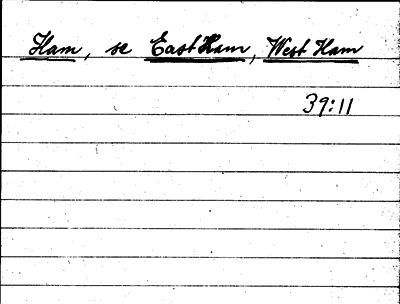 Ham, se East Ham, West Ham
39:11